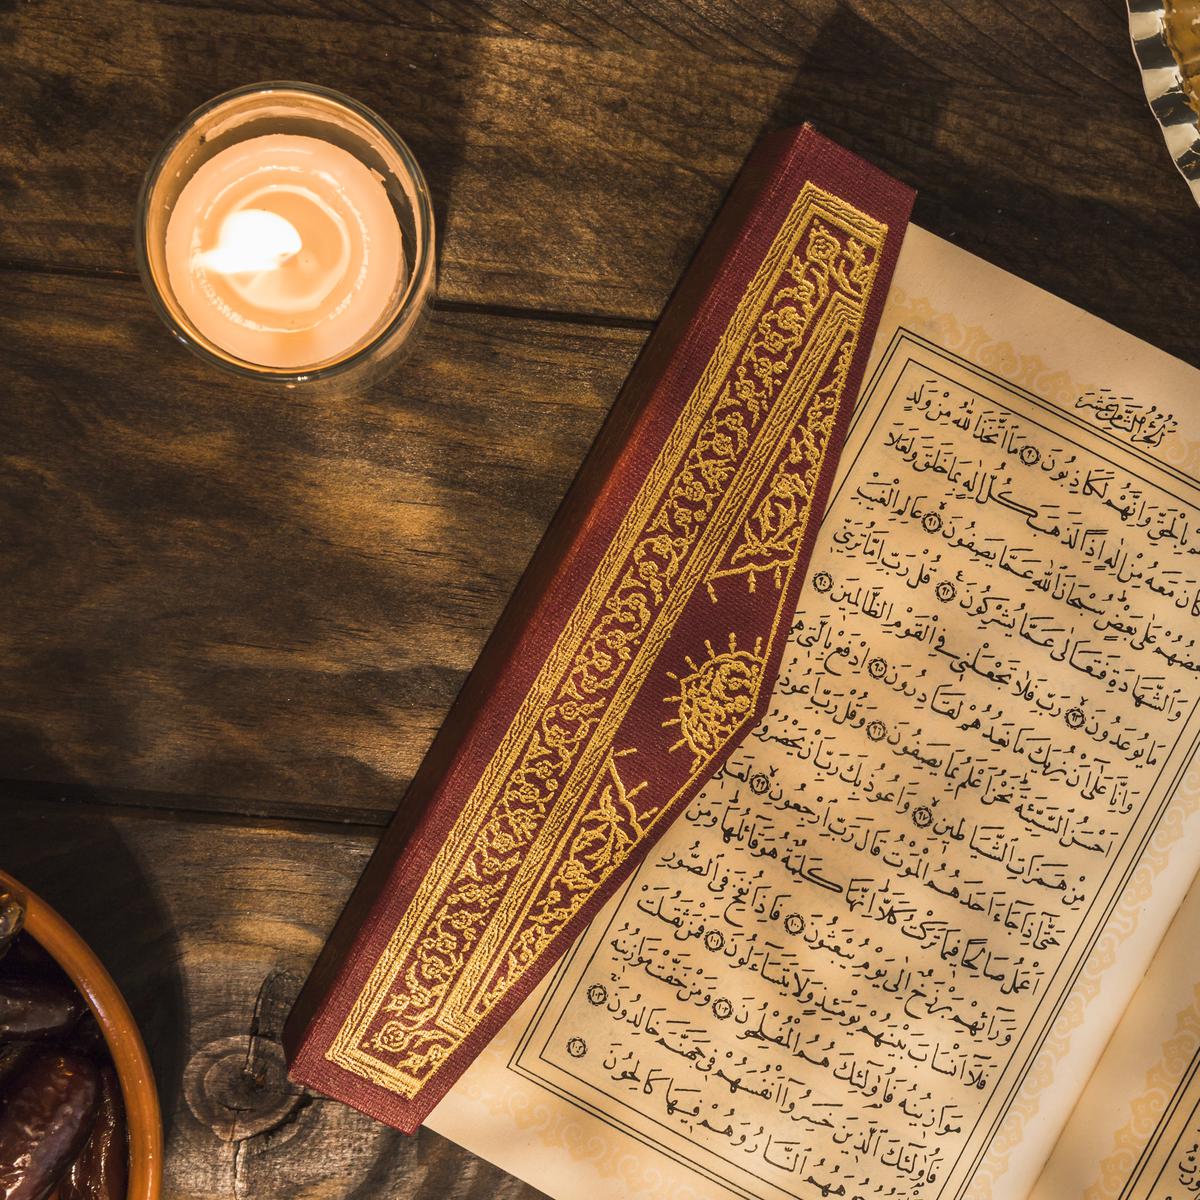 الْجُزْءُ الثَّامِنَ عَشَرَ
بِالْحَقِّ وَاِنَّهُمْ لَكَاذِبُونَ ﴿٩٠﴾ مَا اتَّخَذَ اللّٰهُ مِنْ وَلَدٍ
كَانَ مَعَهُ مِنْ اِلٰهٍ اِذًا لَذَهَبَ كُلُّ اِلٰهٍ بِمَا خَلَقَ وَلَعَلَا
بَعْضُهُمْ عَلٰى بَعْضٍ سُبْحَانَ اللّٰهِ عَمَّا يَصِفُونَ ﴿٩١﴾ عَالِمِ الْغَيْبِ
وَالشَّهَادَةِ فَتَعَالٰى عَمَّا يُشْرِكُونَ ﴿٩٢﴾ قُلْ رَبِّ اِمَّا تُرِيَنِّي
مَا يُوعَدُونَ ﴿٩٣﴾ رَبِّ فَلَا تَجْعَلْنِي فِي الْقَوْمِ الظَّالِمِينَ ﴿٩٤﴾
وَاِنَّا عَلٰى اَنْ نُرِيَكَ مَا نَعِدُهُمْ لَقَادِرُونَ ﴿٩٥﴾ اِدْفَعْ بِالَّتِي هِيَ
اَحْسَنُ السَّيِّئَةَ نَحْنُ اَعْلَمُ بِمَا يَصِفُونَ ﴿٩٦﴾ وَقُلْ رَبِّ اَعُوذُ
مِنْ هَمَزَاتِ الشَّيَاطِينِ ﴿٩٧﴾ وَاَعُوذُ بِكَ رَبِّ اَنْ يَحْضُرُونِ
حَتّٰى اِذَا جَاءَ اَحَدَهُمُ الْمَوْتُ قَالَ رَبِّ ارْجِعُونِ ﴿٩٩﴾ لَعَلِّي
اَعْمَلُ صَالِحًا فِيمَا تَرَكْتُ كَلَّا اِنَّهَا كَلِمَةٌ هُوَ قَائِلُهَا وَمِنْ
وَرَائِهِمْ بَرْزَخٌ اِلٰى يَوْمِ يُبْعَثُونَ ﴿١٠٠﴾ فَاِذَا نُفِخَ فِي الصُّورِ
فَلَا اَنْسَابَ بَيْنَهُمْ يَوْمَئِذٍ وَلَا يَتَسَاءَلُونَ ﴿١٠١﴾ فَمَنْ ثَقُلَتْ
مَوَازِينُهُ فَاُولٰئِكَ هُمُ الْمُفْلِحُونَ ﴿١٠٢﴾ وَمَنْ خَفَّتْ مَوَازِينُهُ
فَاُولٰئِكَ الَّذِينَ خَسِرُوا اَنْفُسَهُمْ فِي جَهَنَّمَ خَالِدُونَ ﴿١٠٣﴾
هَهُمُ النَّارُ وَهُمْ فِيهَا كَالِحُونَ ﴿١٠٤﴾